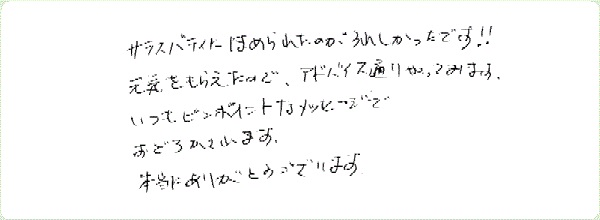 サラスバティにほめられたのがうれしかったです!!
元気をもらえたので、アドバイス通りがってみます。
いつもピンポイントなメッセージで
おどろかされます。
本当にありがとうございます